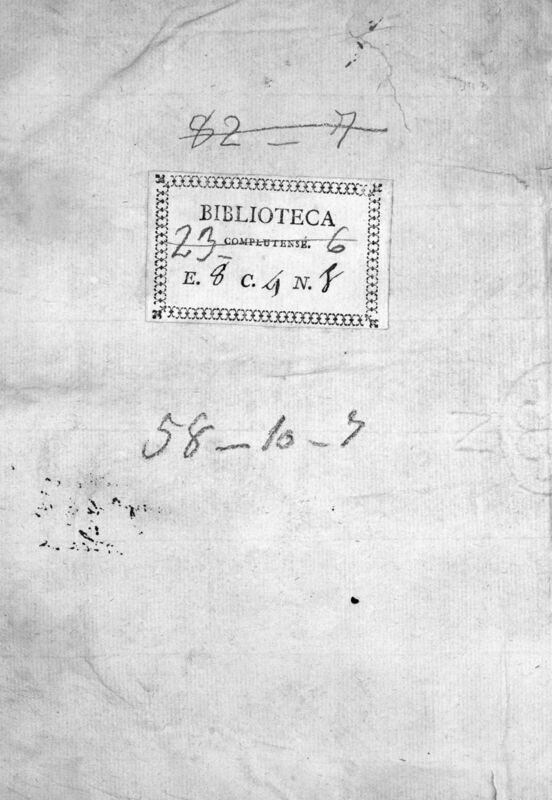 82 - 7
BIBLIOTECA
COMPLUTENSE.
23 - 6
E. 8 C. 4 N. 8
58 - 10 - 7